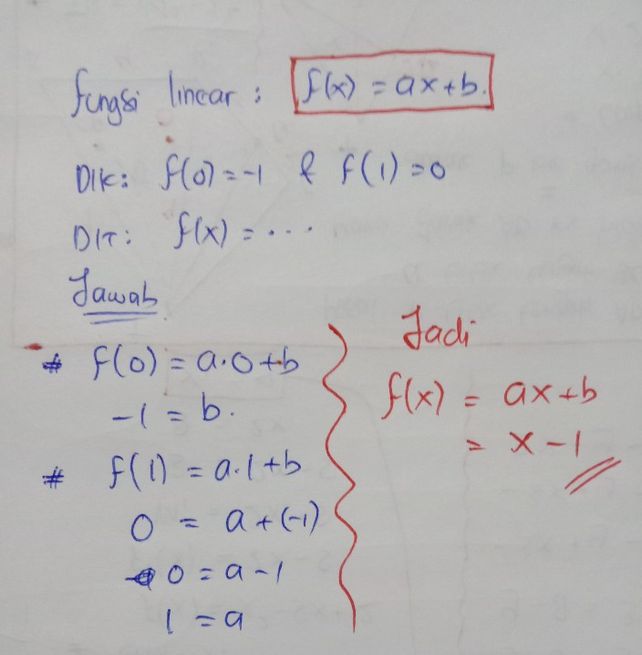 fungsi linear : f(x) = ax+b.
DIK: f(0) = -1 & f(1) = 0
DIT: f(x) = ...
Jawab
# f(0) = a·0+b
-1 = b.
# f(1) = a·1+b
0 = a+(-1)
0 = a-1
1 = a
Jadi
f(x) = ax+b
= x-1